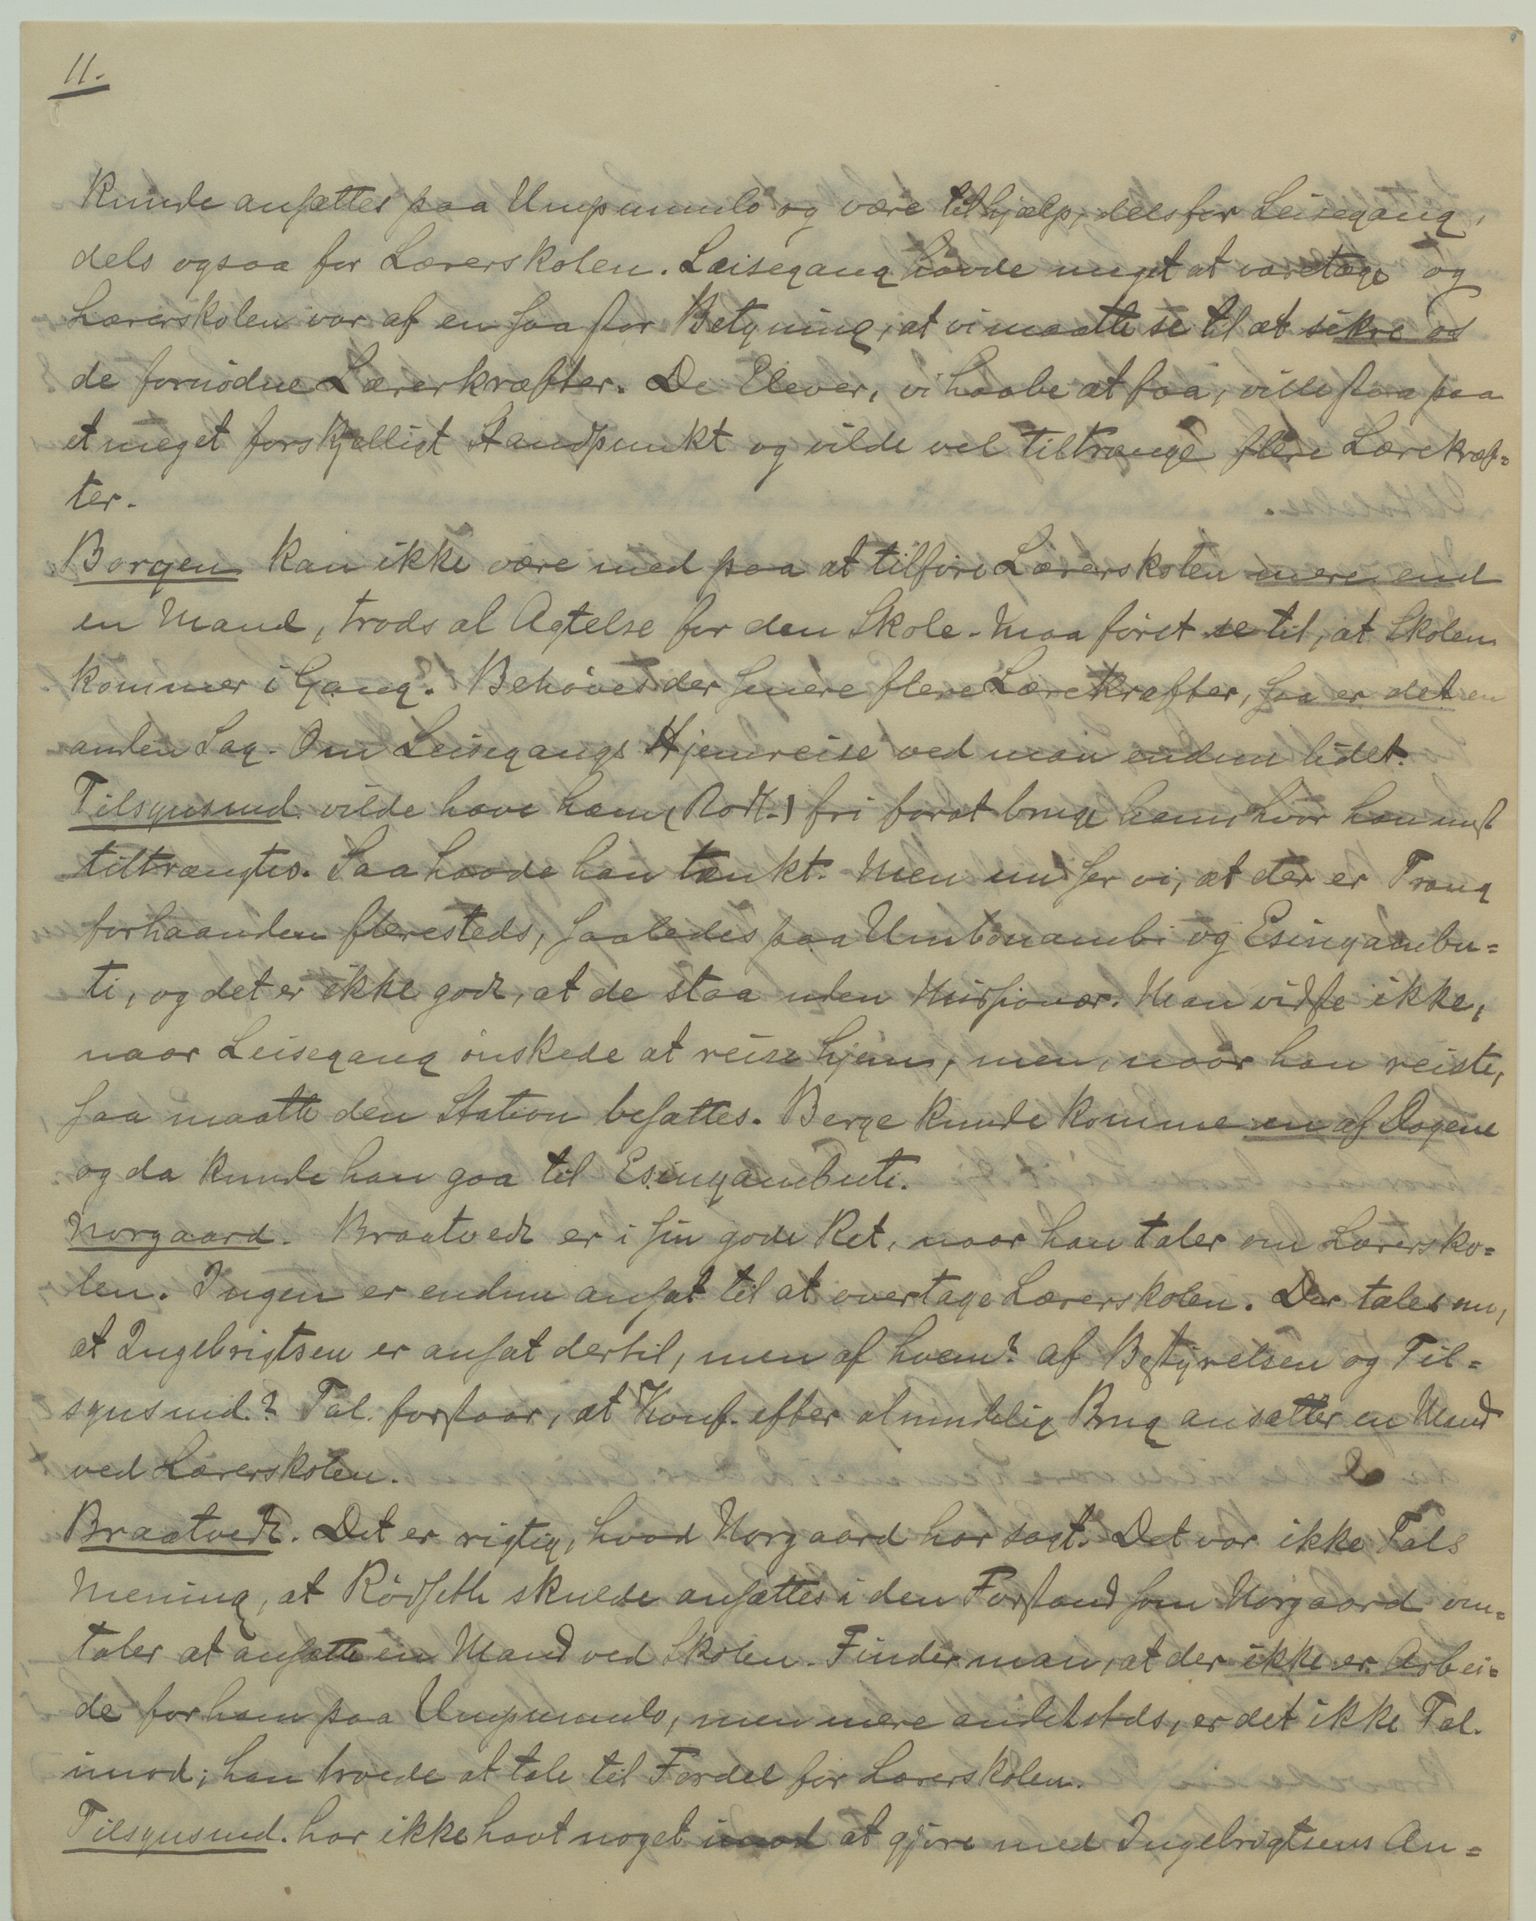 11.
kunde ansættes paa Umpumulo og være til hjælp, dels for Leisegang,
dels ogsaa for Lærerskolen. Leisegang havde meget at varetage og
Lærerskolen var af en saa stor Betydning, at vi maatte se til at sikre os
de fornödne Lærerkræfter. De Elever, vi haabe at faa, ville staa paa
et meget forskjelligt Standpunkt og vilde vel tiltrænge flere Lærekræf-
ter.
Borgen kan ikke være med paa at tilföre Lærerskolen mere end
en Mand, trods al Agtelse for den Skole. Maa först se til, at Skolen
kommer i Gang. Behöves der senere flere Lærekræfter, saa er det en
anden Sag. Om Leisegangs Hjemreise ved man endnu lidet.
Tilsynsmd. vilde have ham (Rödf.) fri forat bruge ham, hvor han mest
tiltrængtes. Saa havde han tænkt. Men nu ser vi, at der er Trang
forhaanden fleresteds, saaledes paa Umbonambi og Esinyambu-
ti, og det er ikke godt, at de staa uden Missionær. Man vidste ikke,
naar Leisegang önskede at reise hjem, men, naar han reiste,
saa maatte den Station besættes. Berge kunde komme en af Dagene
og da kunde han gaa til Esinyambuti.
Norgaard. Braatvedt er i sin gode Ret, naar han taler om Lærersko-
len. Ingen er endnu ansat til at overtage Lærerskolen. Der tales om,
at Ingebrigtsen er ansat dertil, men af hvem? af Bestyrelsen og Til-
synsmd.? Tal. forstaar, at Konf. efter almindelig Brug ansætter en Mand
ved Lærerskolen.
Braatvedt. Det er rigtig, hvad Norgaard har sagt. Det var ikke Tals
Mening, at Rödseth skulde ansættes i den Forstand som Norgaard om-
taler at ansætte en Mand ved Skolen. Finder man, at der ikke er Arbei-
de for ham paa Umpumulo, men mere andetsteds, er det ikke Tal.
imod; han troede at tale til Fordel for Lærerskolen.
Tilsynsmd. har ikke havt noget imod at gjöre med Ingebrigtsens An-